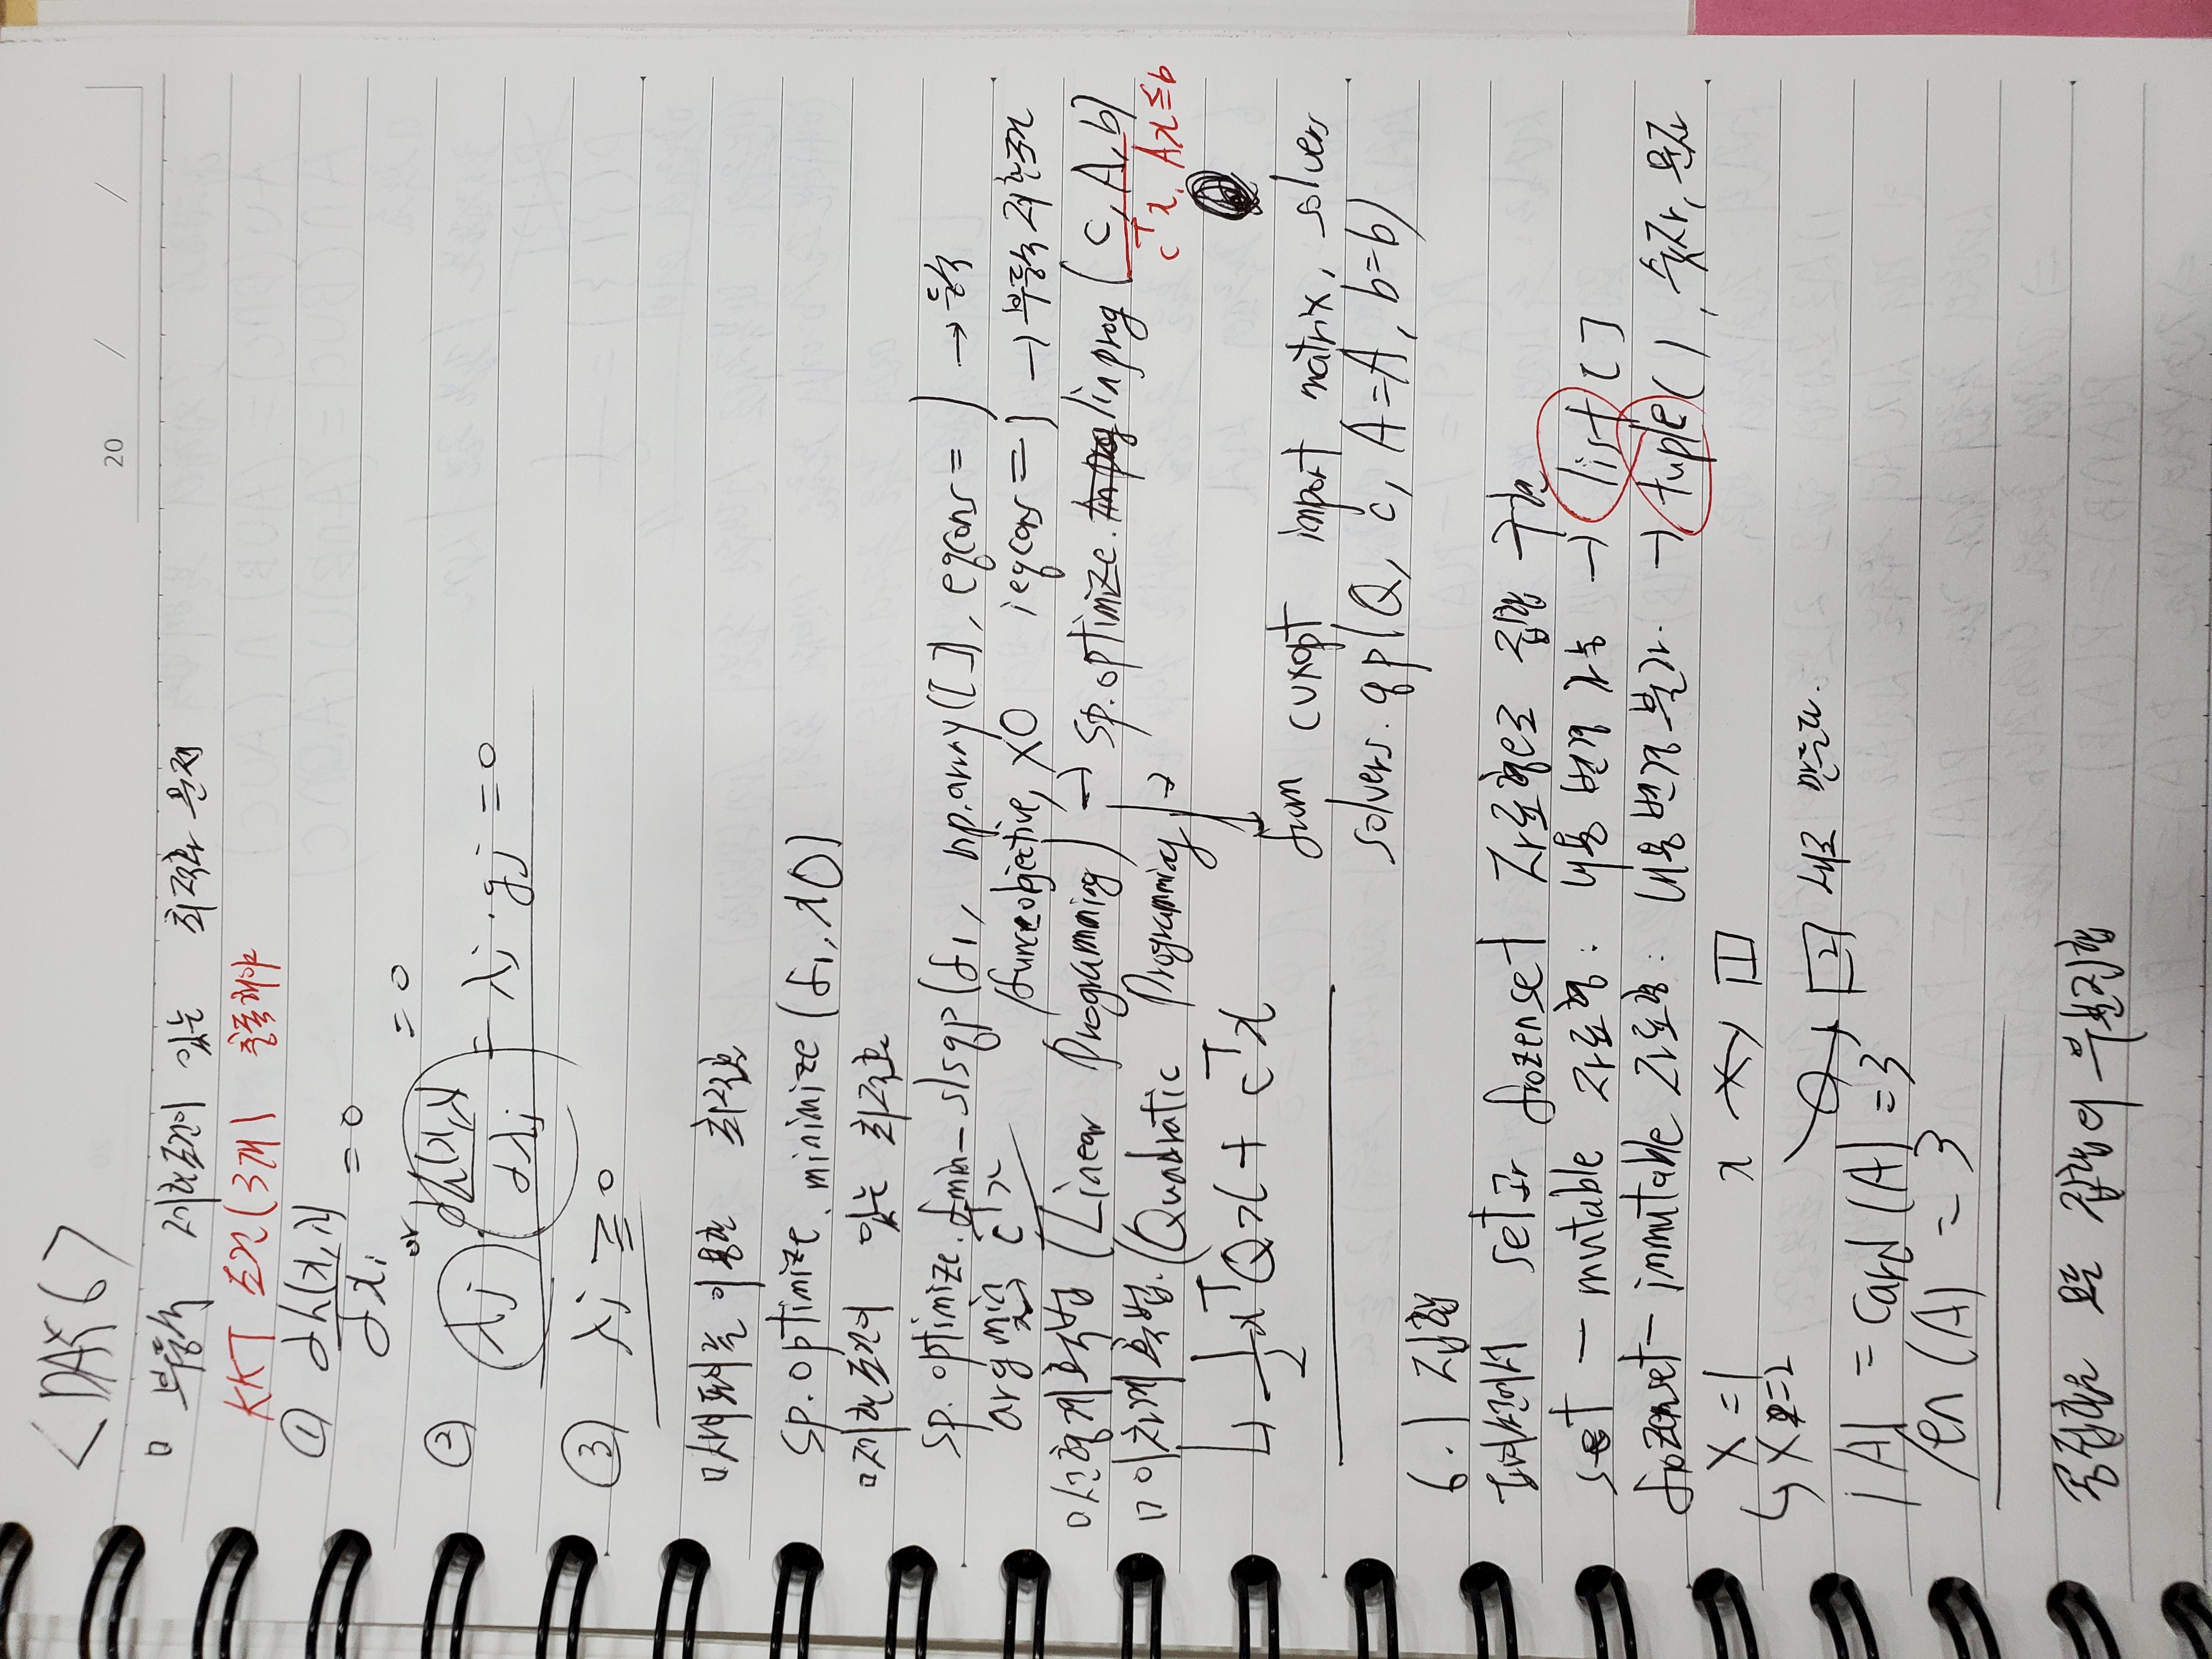 <DAY 6>
20 / /
□ 부등식 제한조건이 있는 최적화 문제
KKT 조건(3개) 충족해야
① dh(x,λ)/dxi = 0
or = 0
② λj · dh(x,λ)/dλj = λj · gj = 0
③ λj ≧ 0
□ 사이파이를 이용한 최적화
sp.optimize.minimize(f1, x0)
□ 제한조건이 있는 최적화
sp.optimize.fmin_slsqp(f1, np.array([]), eqcons= ) → 등식
arg min x cᵀx func objective, x0 ieqcons= ) → 부등식 제한조건
□ 선형계획법 (Linear Programming) → sp.optimize.linprog(c, A, b)
cᵀx, Ax≦b
□ 이차계획법. (Quadratic Programming) →
↳ 1/2 xᵀQx + cᵀx
from cvxopt import matrix, solvers
solvers.qp(Q, c, A=A, b=b)
6.1 집합
파이썬에서 set과 frozenset 자료형으로 집합 구현
set – mutable 자료형: 내용 변경 가능 → list []
frozenset – immutable 자료형: 내용 변경 불가. → tuple( ), 숫자, 문자
x = 1 x → 1
↳ x = 2
→ 2 새로 만든다.
|A| = card(A) = 3
len(A) = 3
공집합은 모든 집합의 부분집합